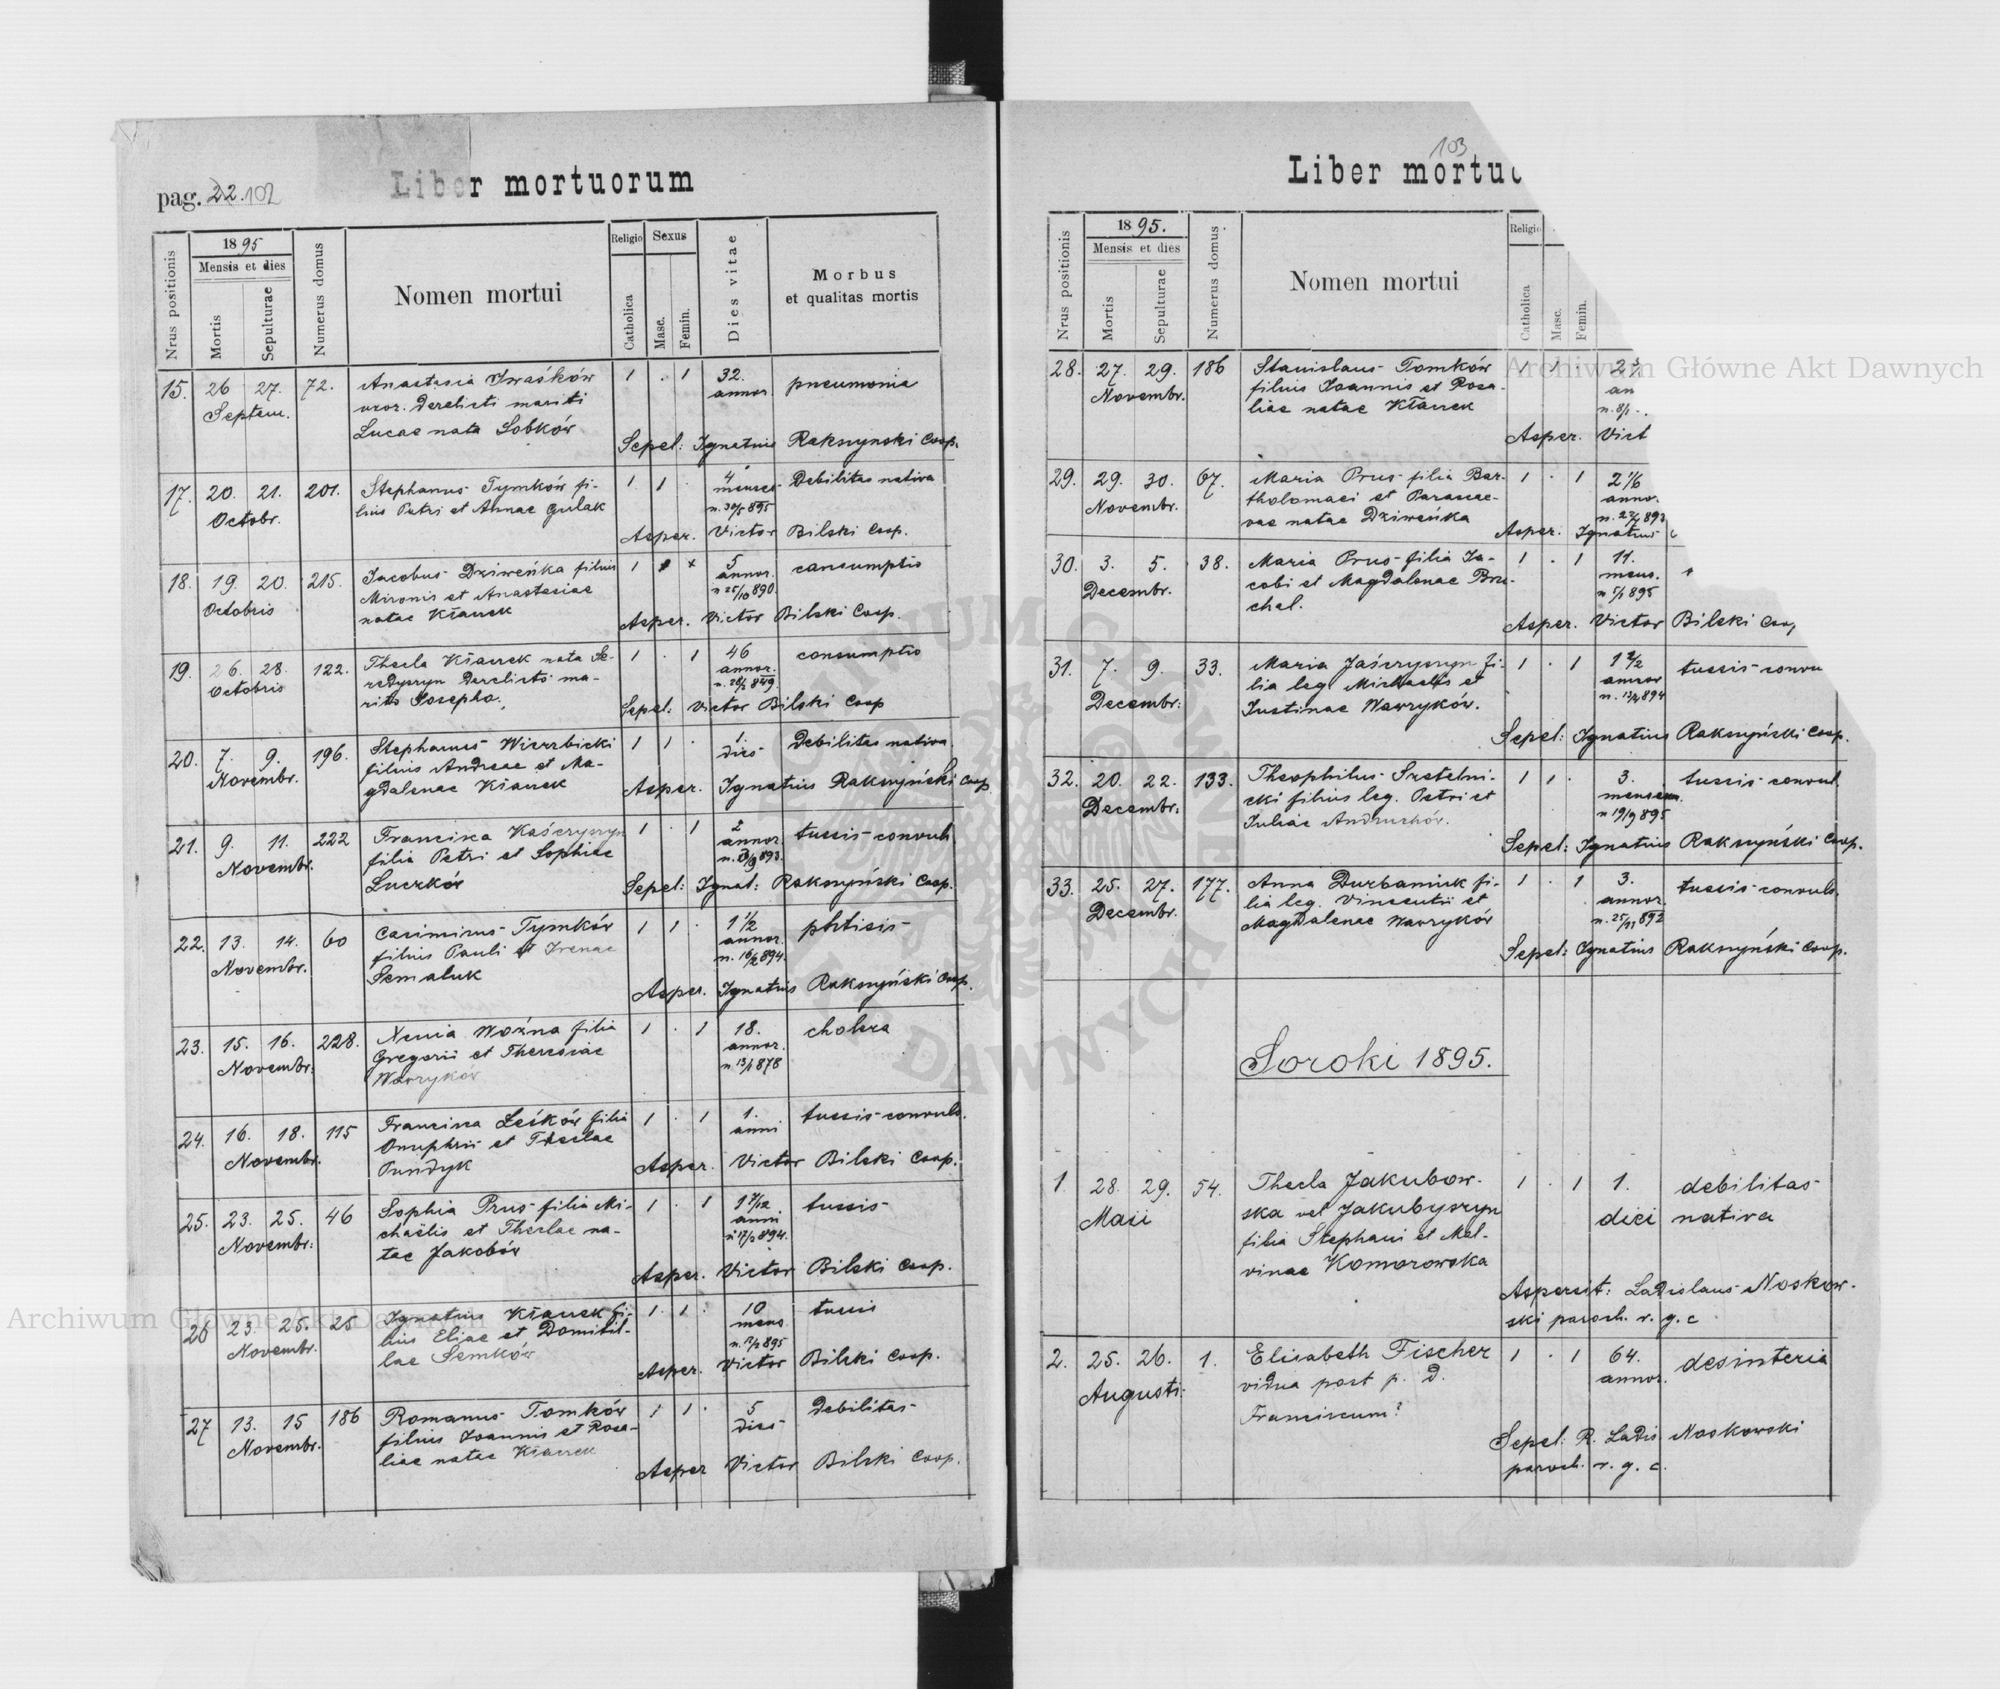 pag. 22. 102
Liber mortuorum
Nrus positionis
1895
Mensis et dies
Mortis
Sepulturae
Numerus domus
Nomen mortui
Religio
Catholica
Sexus
Masc.
Femin.
Dies vitae
Morbus
et qualitas mortis
15. 26 27. 72. Anastasia Iwaśków 1 . 1 32. pneumonia
Septem. uxor. derelicti mariti annor.
Lucae nata Sobków
Sepel: Ignatius Raksynski Coop.
17. 20. 21. 201. Stephanus Tymków fi- 1 1 4 Debilitas nativa
Octobr. lius Petri et Annae Gulak menses
n. 30/5 895
Asper. Victor Bilski Coop.
18. 19. 20. 215. Jacobus Dziweńka filius 1 x 5 consumptio
Octobris Mironis et Anastasiae annor.
natae Kłauek n 25/10 890
Asper. Victor Bilski Coop.
19. 26. 28. 122. Thecla Kłauek nata Se- 1 . 1 46 consumptio
Octobris redyszyn derelicto ma- annor.
rito Josepho.
Sepel: Victor Bilski Coop
20. 7. 9. 196. Stephanus Wierzbicki 1 1 . 1. Debilitas nativa
Novembr. filius Andreae et Ma- dies
gdalenae Kłauek
Asper. Ignatius Raksyński Coop
21. 9. 11. 222 Francisca Kaśczyszyn 1 . 1 2 tussis convuls
Novembr. filia Petri et Sophiae annor.
Luczków
Sepel: Ignat: Raksyński Coop.
22. 13. 14. 60 Casimirus Tymków 1 1 . 1 1/2 phtisis
Novembr. filius Pauli et Irenae annor.
Semaluk n. 16/2 894.
Asper. Ignatius Raksyński Coop.
23. 15. 16. 228. Xenia Woźna filia 1 . 1 18. cholera
Novembr: Gregorii et Theresiae annor.
Wawryków n 13/1 878
24. 16. 18. 115 Francisca Leśków filia 1 . 1 1. tussis convuls.
Novembr. Onuphrii et Theclae anni
Pundyk
Asper. Victor Bilski Coop.
25. 23. 25. 46 Sophia Prus filia Mi- 1 . 1 1 7/12 tussis
Novembr: chaëlis et Theclae na- anni
tae Jakobów
Asper. Victor Bilski Coop.
26 23. 25. 25 Ignatius Kłauek fi- 1. 1. 10 tussis
Novembr. lius Eliae et Domitil- mens
lae Semków
Asper. Victor Bilski Coop.
27 13. 15 186 Romanus Tomków 1 1. 5 debilitas
Novembr. filius Joannis et Rosa- dies
liae natae Kłauek
Asper Victor Bilski Coop.
103
Liber mortuo
Nrus positionis
1895.
Mensis et dies
Mortis
Sepulturae
Numerus domus
Nomen mortui
Religio
Catholica
Masc.
Femin.
28. 27. 29. 186 Stanislaus Tomków 1 1
Novembr. filius Joannis et Rosa- an
liae natae Kłauek n. 8/1
Asper. Vict
29. 29. 30. 67. Maria Prus filia Bar- 1 . 1 2 1/6
Novembr. tholomaei et Parasce- annor.
vae natae Dziweńka
Asper. Ignatius
30. 3. 5. 38. Maria Prus filia Ja- 1 . 1 11.
Decembr. cobi et Magdalenae Bru- mens.
chal. n 5/1 895
Asper. Victor Bilski Coop
31. 7. 9. 33. Maria Jaśczyszyn fi- 1 . 1 tussis convu
Decembr: lia leg. Michaelis et annor
Justinae Wawryków.
Sepel: Ignatius Raksyński Coop.
32. 20. 22. 133. Theophilus Szetelni- 1 1 . 3. tussis convul.
Decembr: cki filius leg. Petri et mensium.
Juliae Andruchów. n 19/9 895
Sepel: Ignatius Raksyński Coop.
33. 25. 27. 177. Anna Durbaniuk fi- 1 . 1 3. tussis convuls.
Decembr. lia leg. Vincentii et annor.
Magdalenae Wawryków n. 25/11 892
Sepel: Ignatius Raksyński Coop.
Soroki 1895.
1. 28. 29. 54. Thecla Jakubow- 1 . 1 1. debilitas
Maii ska vel Jakubyszyn diei nativa
filia Stephani et Mal-
vinae Komorowska
Aspersit: Ladislaus Noskow-
ski paroch. r. g. c
2. 25. 26. 1. Elisabeth Fischer 1 . 1 64. desinteria
Augusti: vidua post p. d. annor.
Franciscum?
Sepel: R. Ladis Noskowski
paroch. r. g. c.
Archiwum Główne Akt Dawnych
Archiwum Główne Akt Dawnych